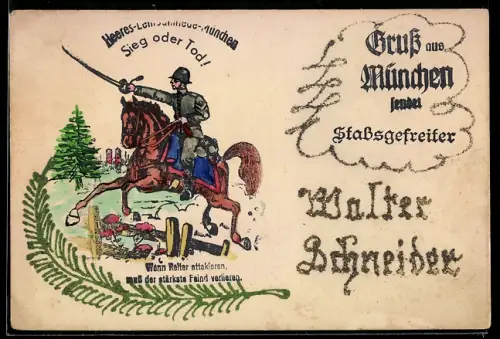 Heeres-Lehrschmiede-München
Sieg oder Tod!
Wenn Reiter attakieren,
muß der stärkste Feind verlieren.
Gruß aus
München
sendet
Stabsgefreiter
Walter
Schneider